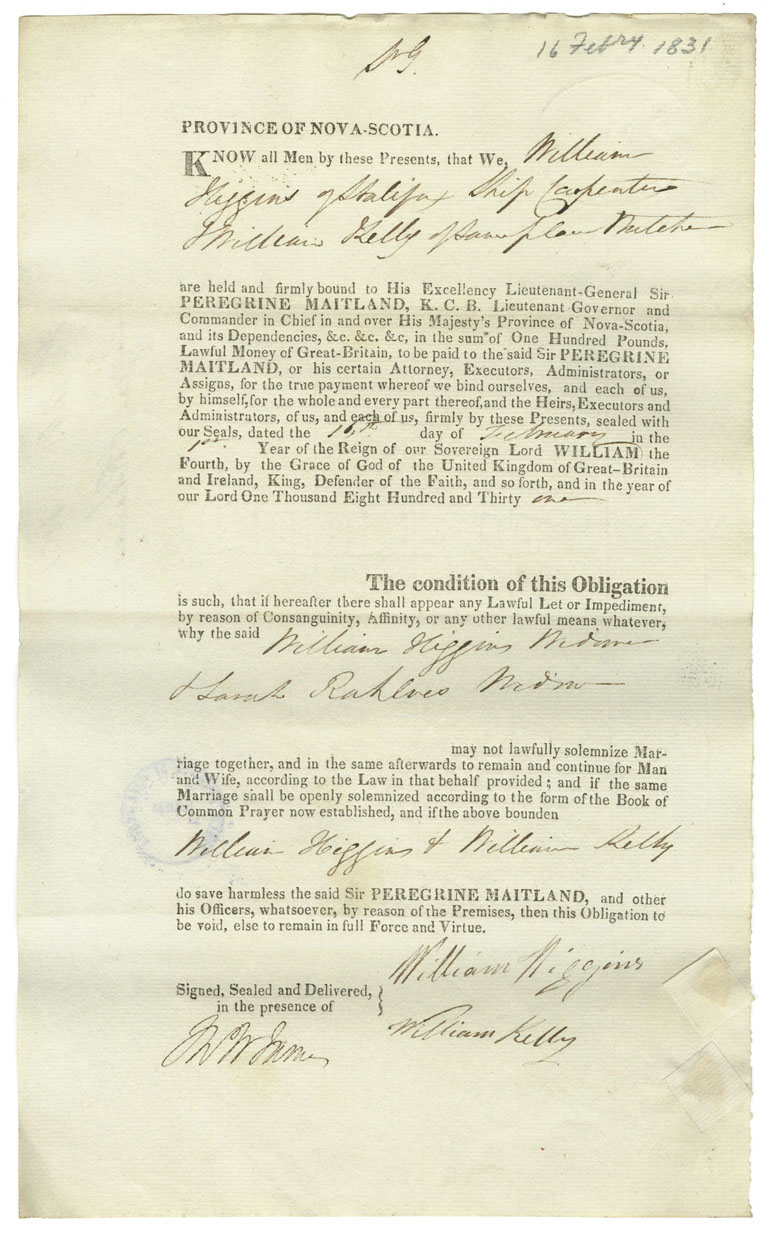 16 Febry. 1831
PROVINCE OF NOVA-SCOTIA.
KNOW all Men by these Presents, that We, William
Higgins of Halifax Ship Carpenter
& William Kelly of same place Butcher
are held and firmly bound to His Excellency Lieutenant-General Sir
PEREGRINE MAITLAND, K. C. B. Lieutenant Governor and
Commander in Chief in and over His Majesty's Province of Nova-Scotia,
and its Dependencies, &c. &c. &c, in the sum of One Hundred Pounds,
Lawful Money of Great-Britain, to be paid to the said Sir PEREGRINE
MAITLAND, or his certain Attorney, Executors, Administrators, or
Assigns, for the true payment whereof we bind ourselves, and each of us,
by himself, for the whole and every part thereof, and the Heirs, Executors and
Administrators, of us, and each of us, firmly by these Presents, sealed with
our Seals, dated the 16th day of February in the
1st Year of the Reign of our Sovereign Lord WILLIAM the
Fourth, by the Grace of God of the United Kingdom of Great-Britain
and Ireland, King, Defender of the Faith, and so forth, and in the year of
our Lord One Thousand Eight Hundred and Thirty one
The condition of this Obligation
is such, that if hereafter there shall appear any Lawful Let or Impediment,
by reason of Consanguinity, Affinity, or any other lawful means whatever,
why the said William Higgins Widower
& Sarah Rahlves Widow
may not lawfully solemnize Mar-
riage together, and in the same afterwards to remain and continue for Man
and Wife, according to the Law in that behalf provided; and if the same
Marriage shall be openly solemnized according to the form of the Book of
Common Prayer now established, and if the above bounden
William Higgins & William Kelly
do save harmless the said Sir PEREGRINE MAITLAND, and other
his Officers, whatsoever, by reason of the Premises, then this Obligation to
be void, else to remain in full Force and Virtue.
William Higgins
Signed, Sealed and Delivered,
in the presence of
William Kelly